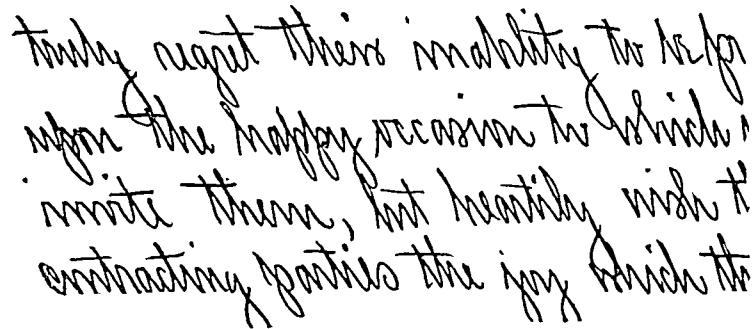 truly regret their inability to be pr
upon the happy occasion to which
invite them, but heartily wish th
contracting parties the joy which th